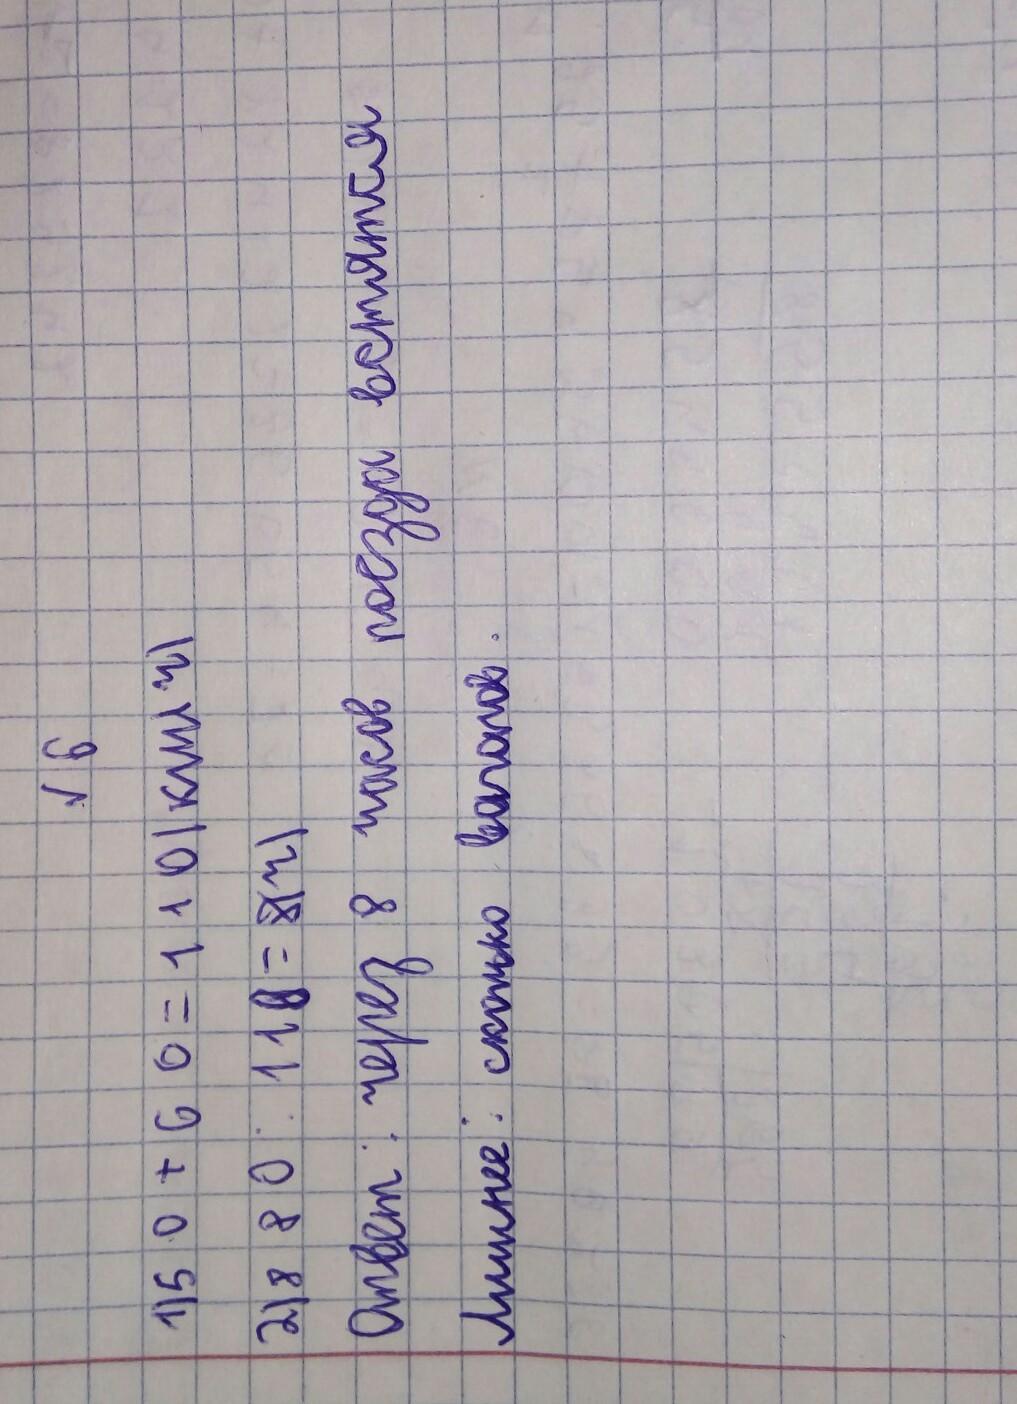 √6
1) 50+60=110(км\ч)
2) 880:110=8(ч)
Ответ: через 8 часов поезда встятся
Лишнее: сколько вагонов.